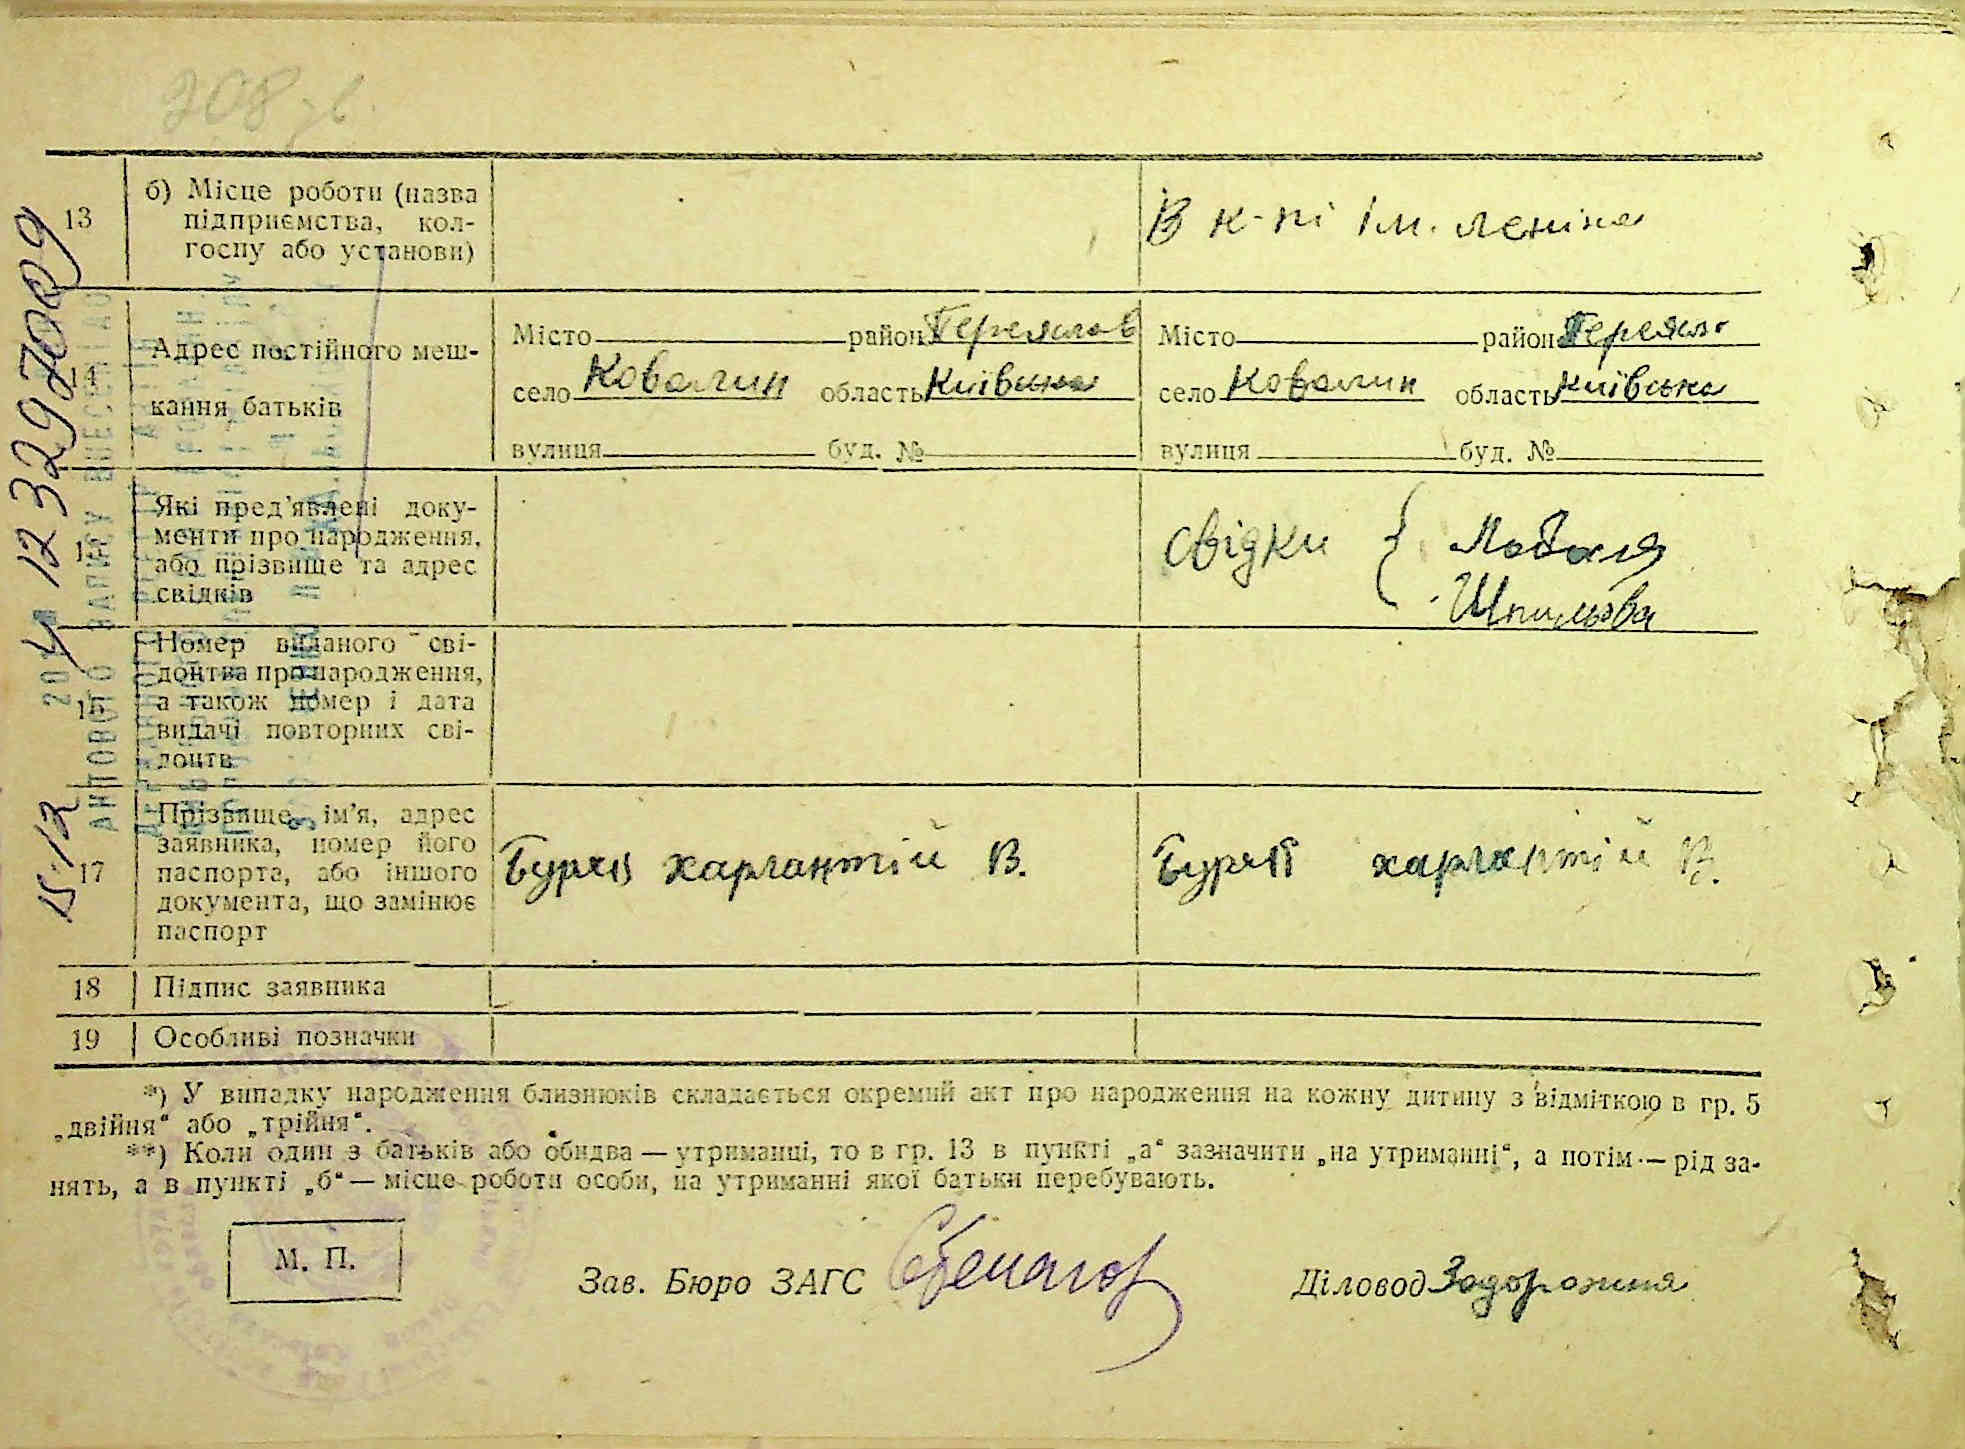 208 зв.
13
б) Місце роботи (назва
підприємства, кол-
госпу або установи)
В к-пі ім. Леніна
14
Адрес постійного меш-
кання батьків
Місто район Переяслав
село Ковалин область Київська
вулиця буд. №
Місто район Переяслав
село Ковалин область Київська
вулиця буд. №
15
Які пред'явлені доку-
менти про народження,
або прізвище та адрес
свідків
свідки
Шпильова
16
Номер виданого сві-
доцтва про народження,
а також номер і дата
видачі повторних сві-
доцтв
17
Прізвище, ім'я, адрес
заявника, номер його
паспорта, або іншого
документа, що замінює
паспорт
Харлантій В.
Харлантій В.
18
Підпис заявника
19
Особливі позначки
*) У випадку народження близнюків складається окремий акт про народження на кожну дитину з відміткою в гр. 5
„двійня“ або „трійня“.
**) Коли один з батьків або обидва — утриманці, то в гр. 13 в пункті „а“ зазначити „на утриманні“, а потім — рід за-
нять, а в пункті „б“ — місце роботи особи, на утриманні якої батьки перебувають.
М. П.
Зав. Бюро ЗАГС
Діловод Задорожня
15.12
123297009